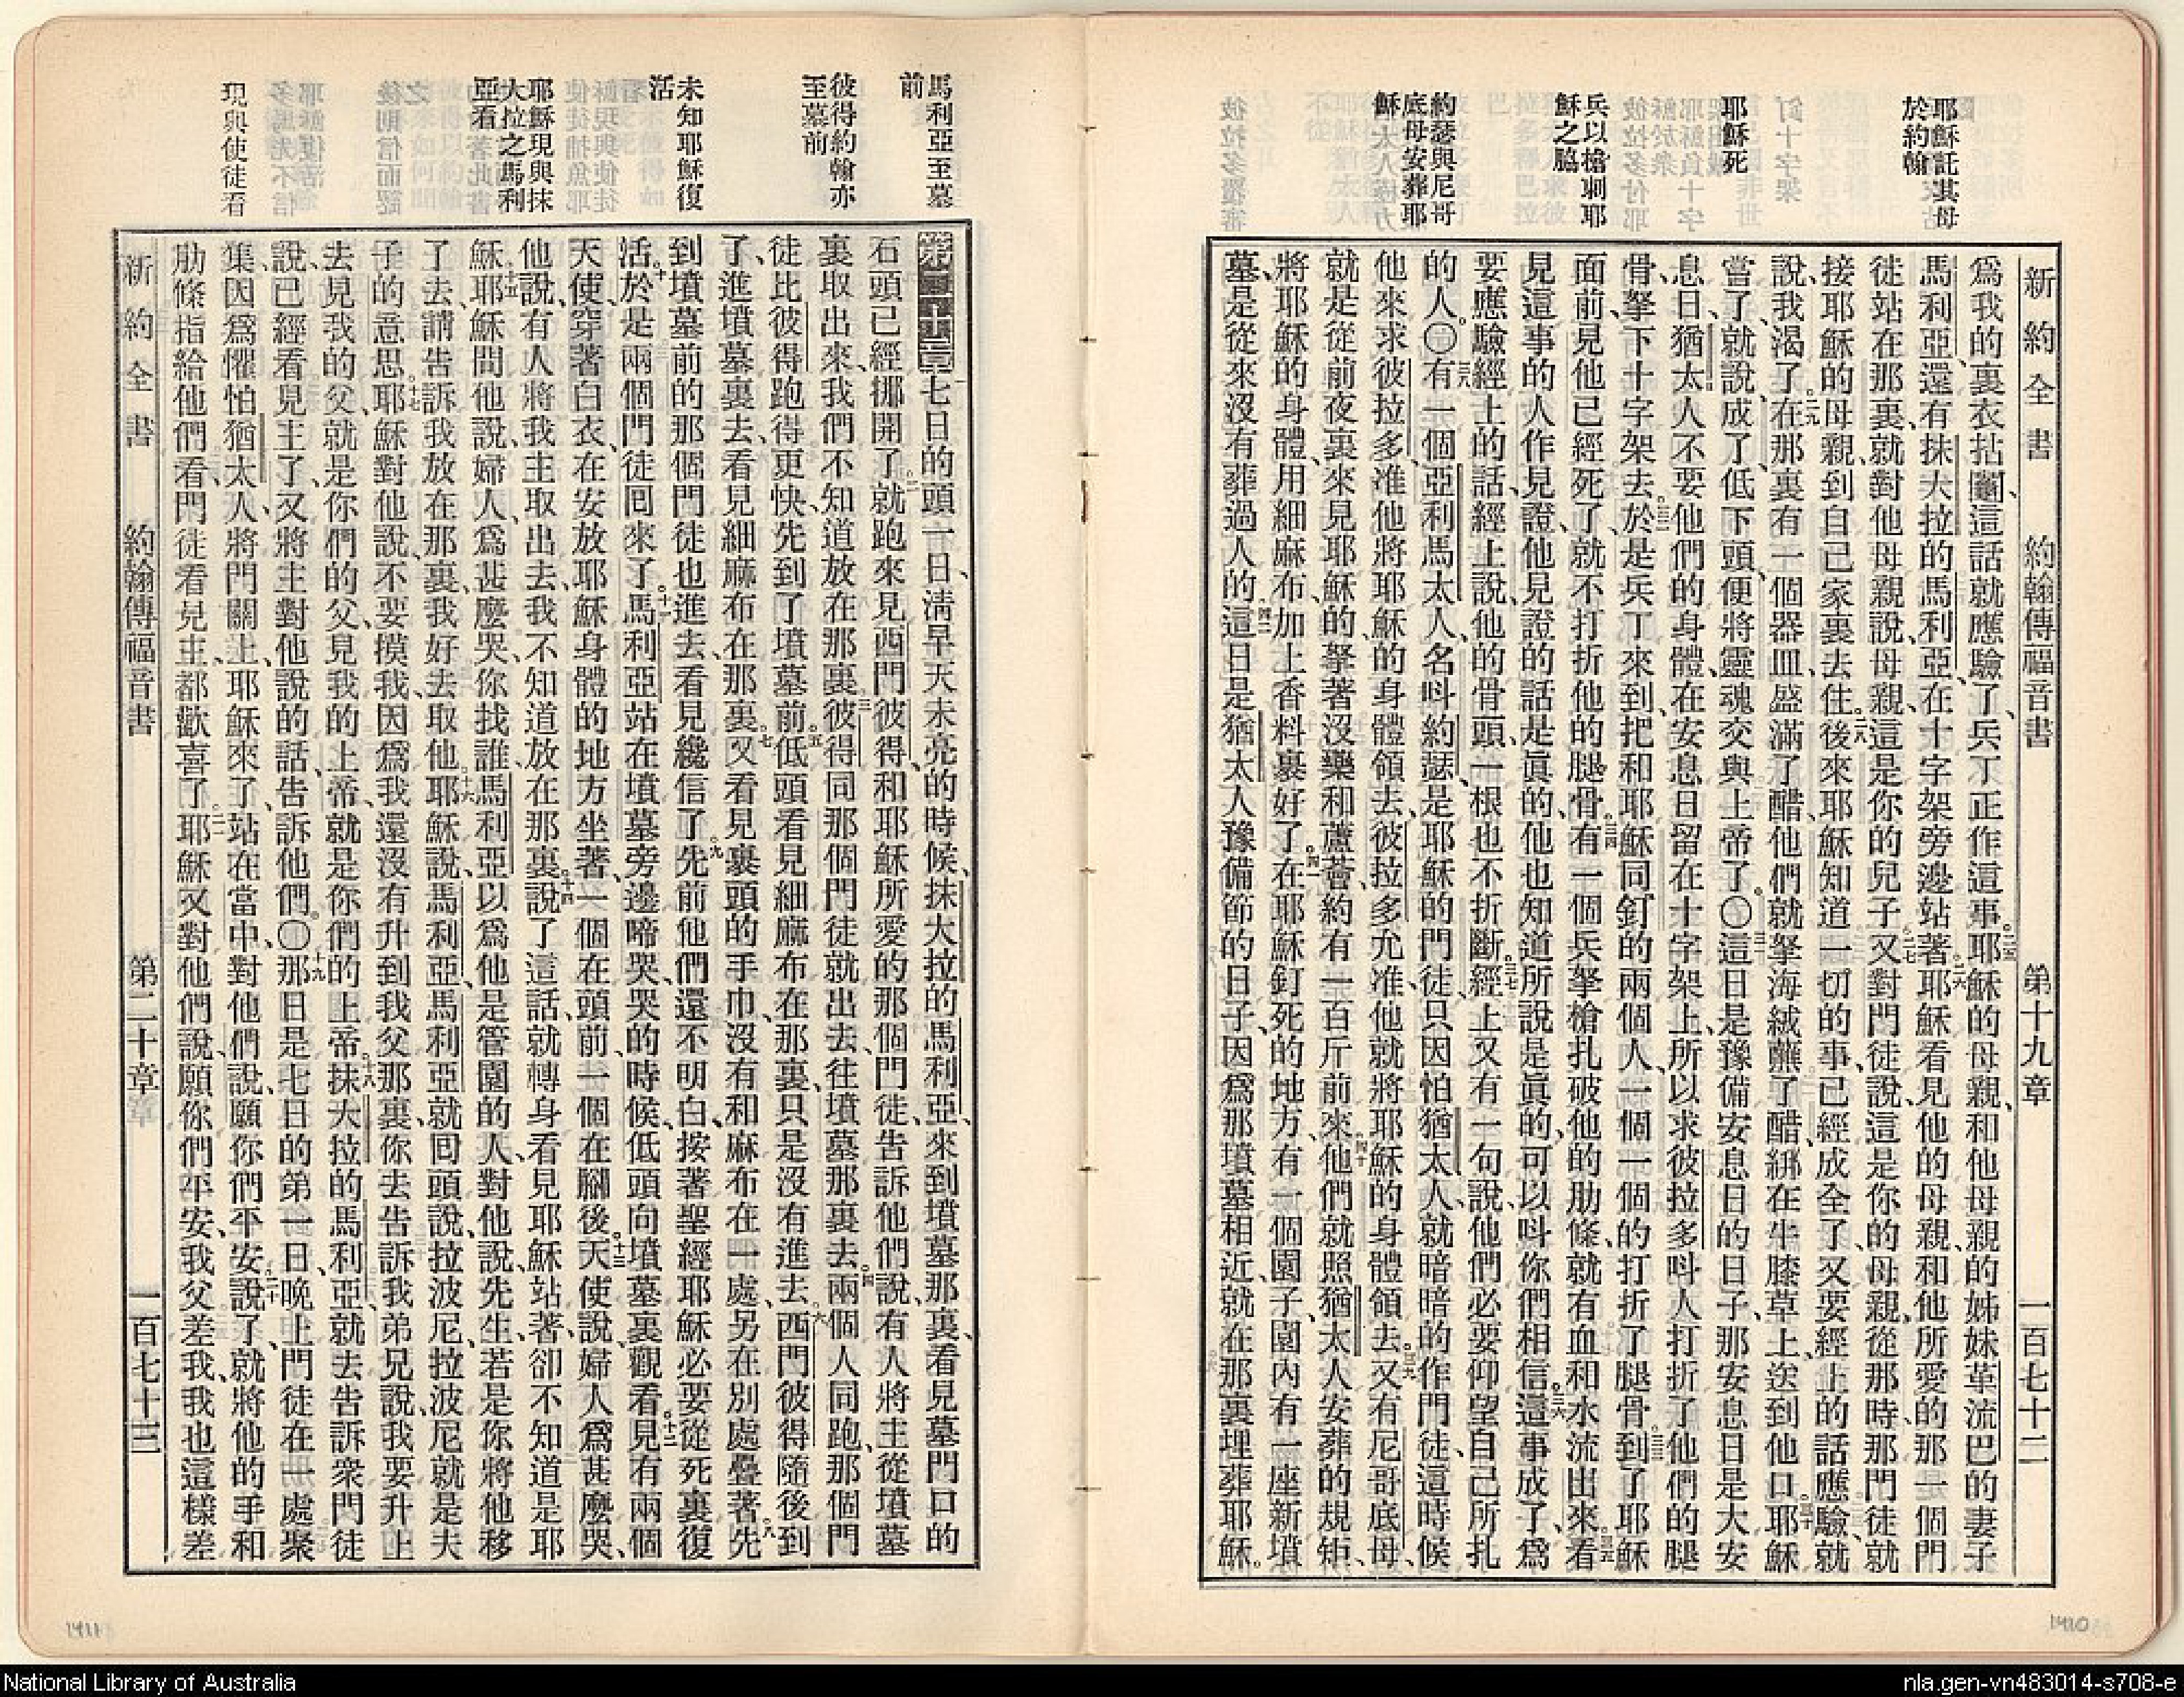 耶穌託其母
於約翰
耶穌死
兵以槍刺耶
穌之脇
約瑟與尼哥
底母安葬耶
穌
新約全書 約翰傳福音書 第十九章 一百七十二
爲我的裏衣拈鬮、這話就應驗了、兵丁正作這事。二五耶穌的母親、和他母親的姊妹革流巴的妻子
馬利亞、還有抹大拉的馬利亞、在十字架旁邊站著。二六耶穌看見他的母親、和他所愛的那一個門
徒站在那裏、就對他母親說、母親、這是你的兒子。二七又對門徒說、這是你的母親、從那時、那門徒就
接耶穌的母親、到自己家裏去住。二八後來耶穌知道一切的事、已經成全了、又要經上的話應驗、就
說、我渴了。二九在那裏有一個器皿、盛滿了醋、他們就拏海絨蘸了醋、綁在牛膝草上、送到他口。三十耶穌
嘗了、就說、成了、低下頭、便將靈魂交與上帝了。〇三一這日是豫備安息日的日子、那安息日是大安
息日、猶太人不要他們的身體、在安息日留在十字架上、所以求彼拉多呌人打折了他們的腿
骨、拏下十字架去。三二於是兵丁來到、把和耶穌同釘的兩個人、一個一個的打折了腿骨。三三到了耶穌
面前、見他已經死了、就不打折他的腿骨。三四有一個兵拏槍扎破他的肋條、就有血和水流出來。三五看
見這事的人作見證、他見證的話是眞的、他也知道所說是眞的、可以呌你們相信。三六這事成了、爲
要應驗經上的話、經上說、他的骨頭、一根也不折斷。三七經上又有一句說、他們必要仰望自己所扎
的人。〇三八有一個亞利馬太人、名呌約瑟、是耶穌的門徒、只因怕猶太人、就暗暗的作門徒、這時候
他來求彼拉多、准他將耶穌的身體領去、彼拉多允准、他就將耶穌的身體領去。三九又有尼哥底母、
就是從前夜裏來見耶穌的、拏著沒藥和蘆薈、約有一百斤前來。四十他們就照猶太人安葬的規矩、
將耶穌的身體、用細麻布加上香料裹好了。四一在耶穌釘死的地方、有一個園子、園內有一座新墳
墓、是從來沒有葬過人的。四二這日是猶太人豫備節的日子、因爲那墳墓相近、就在那裏埋葬耶穌。
馬利亞至墓
前
彼得約翰亦
至墓前
未知耶穌復
活
耶穌現與抹
大拉之馬利
亞看
現與使徒看
第二十章 七日的頭一日、淸早天未亮的時候、抹大拉的馬利亞、來到墳墓那裏、看見墓門口的
石頭已經挪開了。二就跑來見西門彼得、和耶穌所愛的那個門徒、告訴他們說、有人將主從墳墓
裏取出來、我們不知道放在那裏。三彼得同那個門徒就出去、往墳墓那裏去。四兩個人同跑、那個門
徒比彼得跑得更快、先到了墳墓前。五低頭看見細麻布在那裏、只是沒有進去。六西門彼得隨後到
了、進墳墓裏去、看見細麻布在那裏。七又看見裹頭的手巾、沒有和麻布在一處、另在別處疊著。八先
到墳墓前的那個門徒也進去、看見纔信了。九先前他們還不明白、按著聖經、耶穌必要從死裏復
活。十於是兩個門徒囘來了。十一馬利亞站在墳墓旁邊啼哭、哭的時候、低頭向墳墓裏觀看。十二見有兩個
天使、穿著白衣、在安放耶穌身體的地方坐著、一個在頭前、一個在腳後。十三天使說、婦人爲甚麼哭、
他說、有人將我主取出去、我不知道放在那裏。十四說了這話、就轉身看見耶穌站著、卻不知道是耶
穌。十五耶穌問他說、婦人爲甚麼哭、你找誰、馬利亞以爲他是管園的人、對他說、先生、若是你將他移
了去、請告訴我放在那裏、我好去取他。十六耶穌說、馬利亞、馬利亞就囘頭說、拉波尼、拉波尼就是夫
子的意思。十七耶穌對他說、不要摸我、因爲我還沒有升到我父那裏、你去告訴我弟兄說、我要升上
去見我的父、就是你們的父、見我的上帝、就是你們的上帝。十八抹大拉的馬利亞、就去告訴衆門徒
說、已經看見主了、又將主對他說的話、告訴他們。〇十九那日是七日的第一日、晚上門徒在一處聚
集、因爲懼怕猶太人、將門關上、耶穌來了、站在當中、對他們說、願你們平安。二十說了、就將他的手和
肋條指給他們看、門徒看見主、都歡喜了。二一耶穌又對他們說、願你們平安、我父差我、我也這樣差
新約全書 約翰傳福音書 第二十章 一百七十三
1411
1410
National Library of Australia
nla.gen-vn483014-s708-e